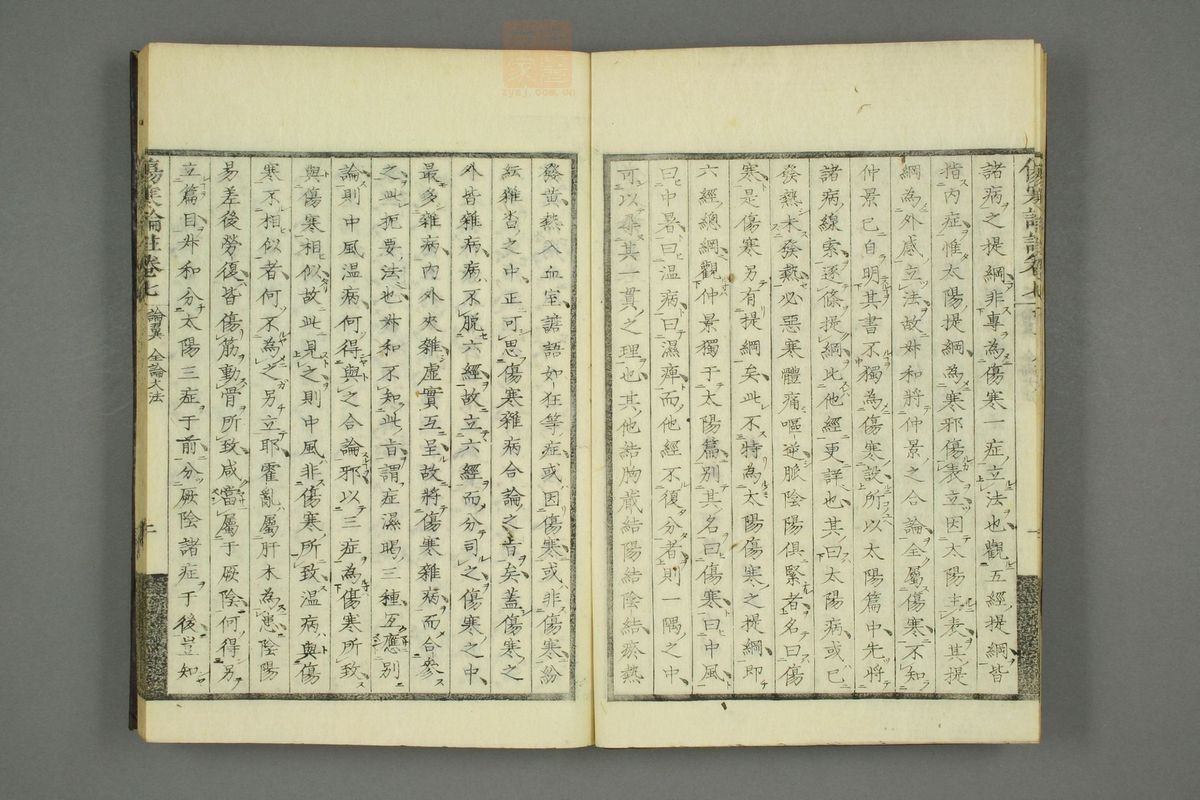 諸病之提綱非專為傷寒一症立法也觀五經提綱皆
指內症惟太陽提綱為寒邪傷表立因太陽主表其提
綱為外感立法故叔和將仲景之合論全屬傷寒不知
仲景已自明其書不獨為傷寒設所以太陽篇中先將
諸病線索逐條提綱此他經更詳也其曰太陽病或已
發熱未發熱必惡寒體痛嘔逆脈陰陽俱緊者名曰傷
寒是傷寒另有提綱矣此不特為太陽傷寒之提綱即
六經總綱觀仲景獨于太陽篇別其名曰傷寒曰中風
曰中暑曰温病曰濕痺而他經不復分者則一隅之中
可以尋其一貫之理也其他結胸藏結陽結陰結瘀熱
發黃熱入血室譫語如狂等症或因傷寒或非傷寒紛
紜雜沓之中正可思傷寒雜病合論之旨矣蓋傷寒之
外皆雜病病不脫六經故立六經而分司之傷寒之中
最多雜病內外夾雜虛實互呈故將傷寒雜病而合參
之此扼要法也叔和不知此旨謂痓濕暍三種互應別
論則中風温病何得與之合論邪以三症為傷寒所致
與傷寒相似故此見之則中風非傷寒所致温病與傷
寒不相似者何不為之另立耶霍亂屬肝木為患陰陽
易差後勞復皆傷筋動骨所致咸當屬于厥陰何得另
立篇目叔和分太陽三症于前分厥陰諸症于後豈知
傷寒論註卷七 論翼 全論大法